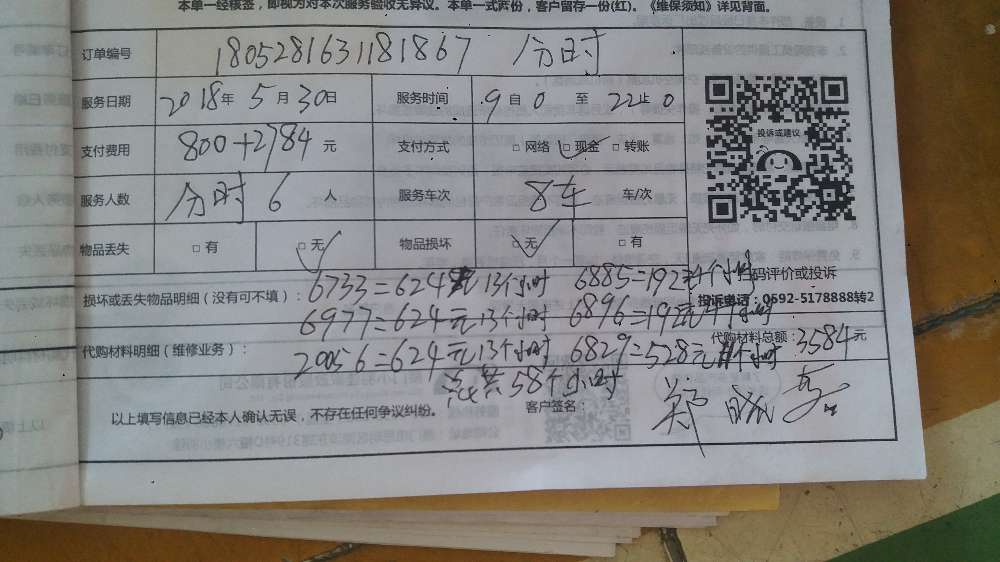 本单一经核签，即视为对本次服务验收无异议。本单一式两份，客户留存一份(红)。《维保须知》详见背面。
订单编号 1805281631181867 分时
服务日期 2018年 5月30日 服务时间 9自0 至 22止0
支付费用 800+2784 元 支付方式 □网络 □现金 □转账
投诉或建议
服务人数 分时 6 人 服务车次 8车 车/次
物品丢失 □有 □无 物品损坏 □无 □有
扫码评价或投诉
损坏或丢失物品明细（没有可不填）：6733=624元13个小时 6885=192元4个小时
投诉电话：0592-5178888转2
6977=624元13个小时 6896=192元4个小时
代购材料明细（维修业务）： 代购材料总额：3584元
20056=624元13个小时 6829=528元11个小时
总共58个小时
以上填写信息已经本人确认无误，不存在任何争议纠纷。 客户签名：